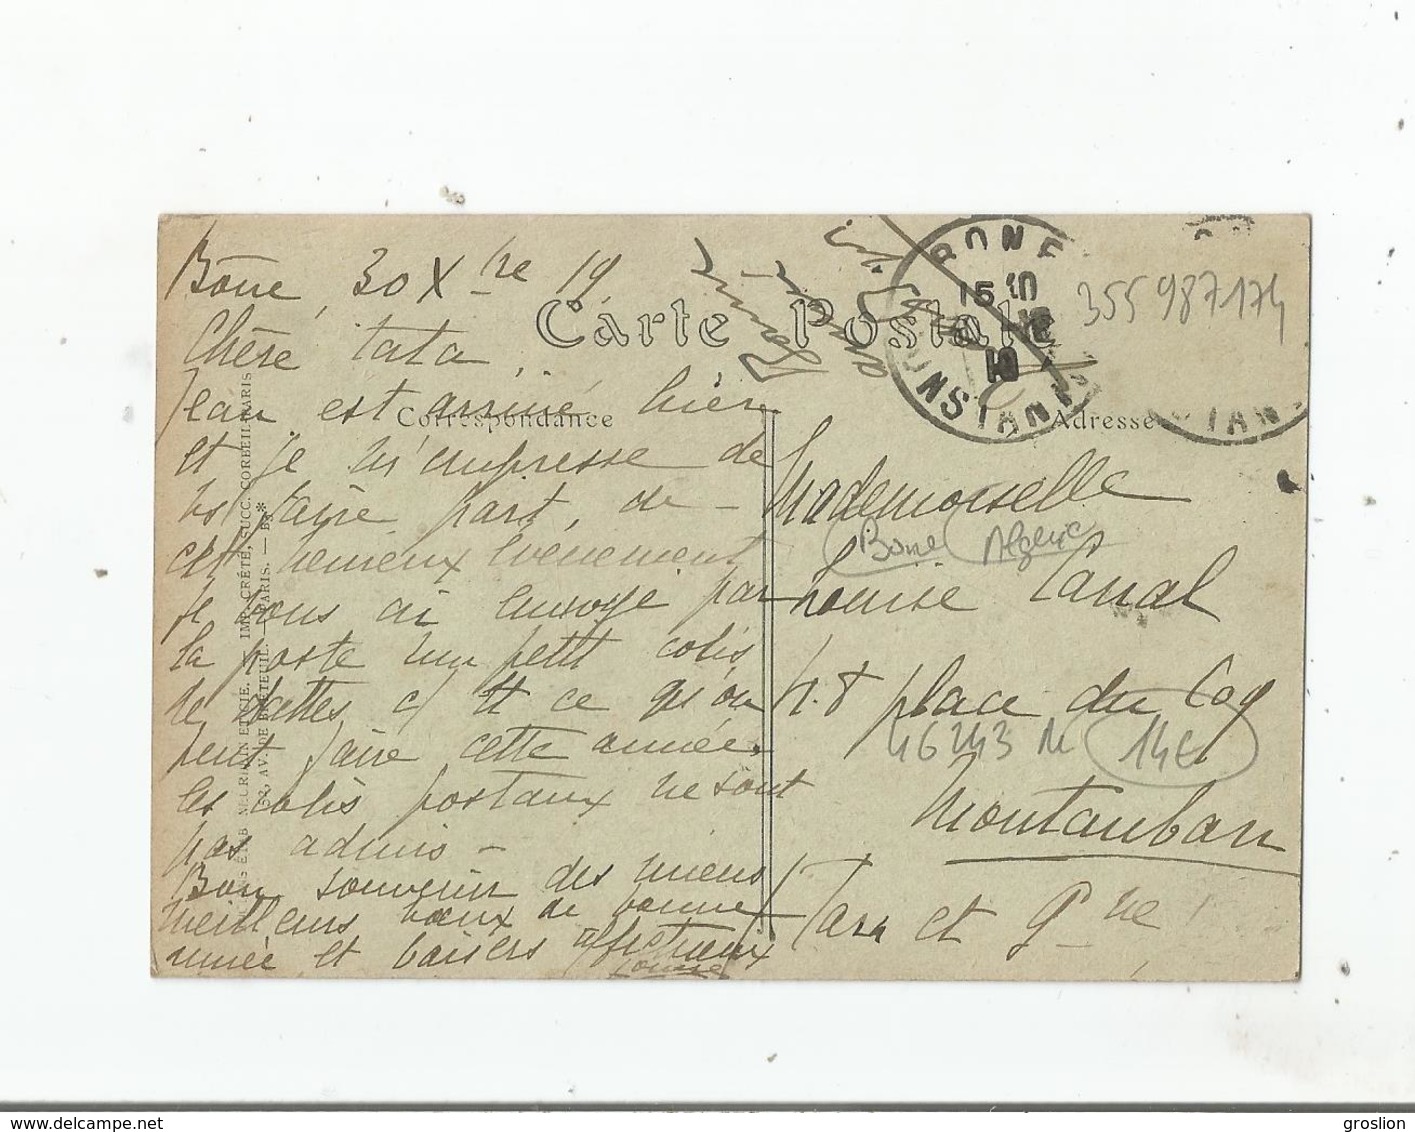 Bône, 30 Xbre 19
Chère tata,
Jean est arrivé hier
et je m'empresse de
vs faire part, de
cet heureux évènement
Je vous ai envoyé par
la poste un petit colis
de dattes c/ tt ce qu'on
peut faire cette année.
les colis postaux ne sont
pas admis -
Bon souvenir des miens
meilleurs vœux de bonne
année et baisers affectueux
Carte Postale
Correspondance
Adresse
BONE
15 10
CONSTANTINE
355987174
Mademoiselle
Bone Algerie
Louise Canal
48 place du Coq
46243 M 14E
Montauban
Tarn et Gne
IMP. CRÉTÉ, SUCC. CORBEIL-PARIS
AV. DE BRETEUIL — PARIS. — B3*
groslion
www.delcampe.net